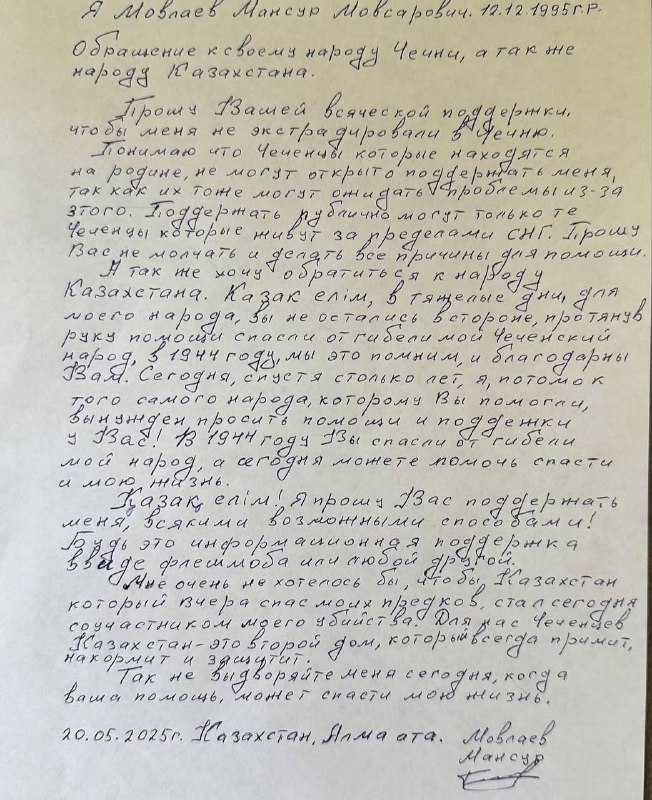 Я Мовлаев Мансур Мовсарович. 12.12.1995г.р.
Обращение к своему народу Чечни, а так же
народу Казахстана.
Прошу Вашей всяческой поддержки,
чтобы меня не экстрадировали в Чечню.
Понимаю что Чеченцы которые находятся
на родине, не могут открыто поддержать меня,
так как их тоже могут ожидать проблемы из-за
этого. Поддержать публично могут только те
Чеченцы которые живут за пределами СНГ. Прошу
Вас не молчать и делать все причины для помощи.
А так же хочу обратиться к народу
Казахстана. Казак елім, в тяжелые дни, для
моего народа, вы не остались в стороне, протянув
руку помощи спасли от гибели мой Чеченский
народ, в 1944 году, мы это помним, и благодарны
Вам. Сегодня, спустя столько лет, я, потомок
того самого народа, которому Вы помогли,
вынужден просить помощи и поддежки
у Вас! В 1944 году Вы спасли от гибели
мой народ, а сегодня можете помочь спасти
и мою жизнь.
Қазақ елім! Я прошу Вас поддержать
меня, всякими возможными способами!
Будь это информационная поддержка
в виде флешмоба или любой другой.
Мне очень не хотелось бы, чтобы, Казахстан
который вчера спас моих предков, стал сегодня
соучастником моего убийства. Для нас Чеченцев
Казахстан-это второй дом, который всегда примит,
накормит и защутит.
Так не выдворяйте меня сегодня, когда
ваша помощь, может спасти мою жизнь.
20.05.2025г. Казахстан, Алма ата. Мовлаев
Мансур